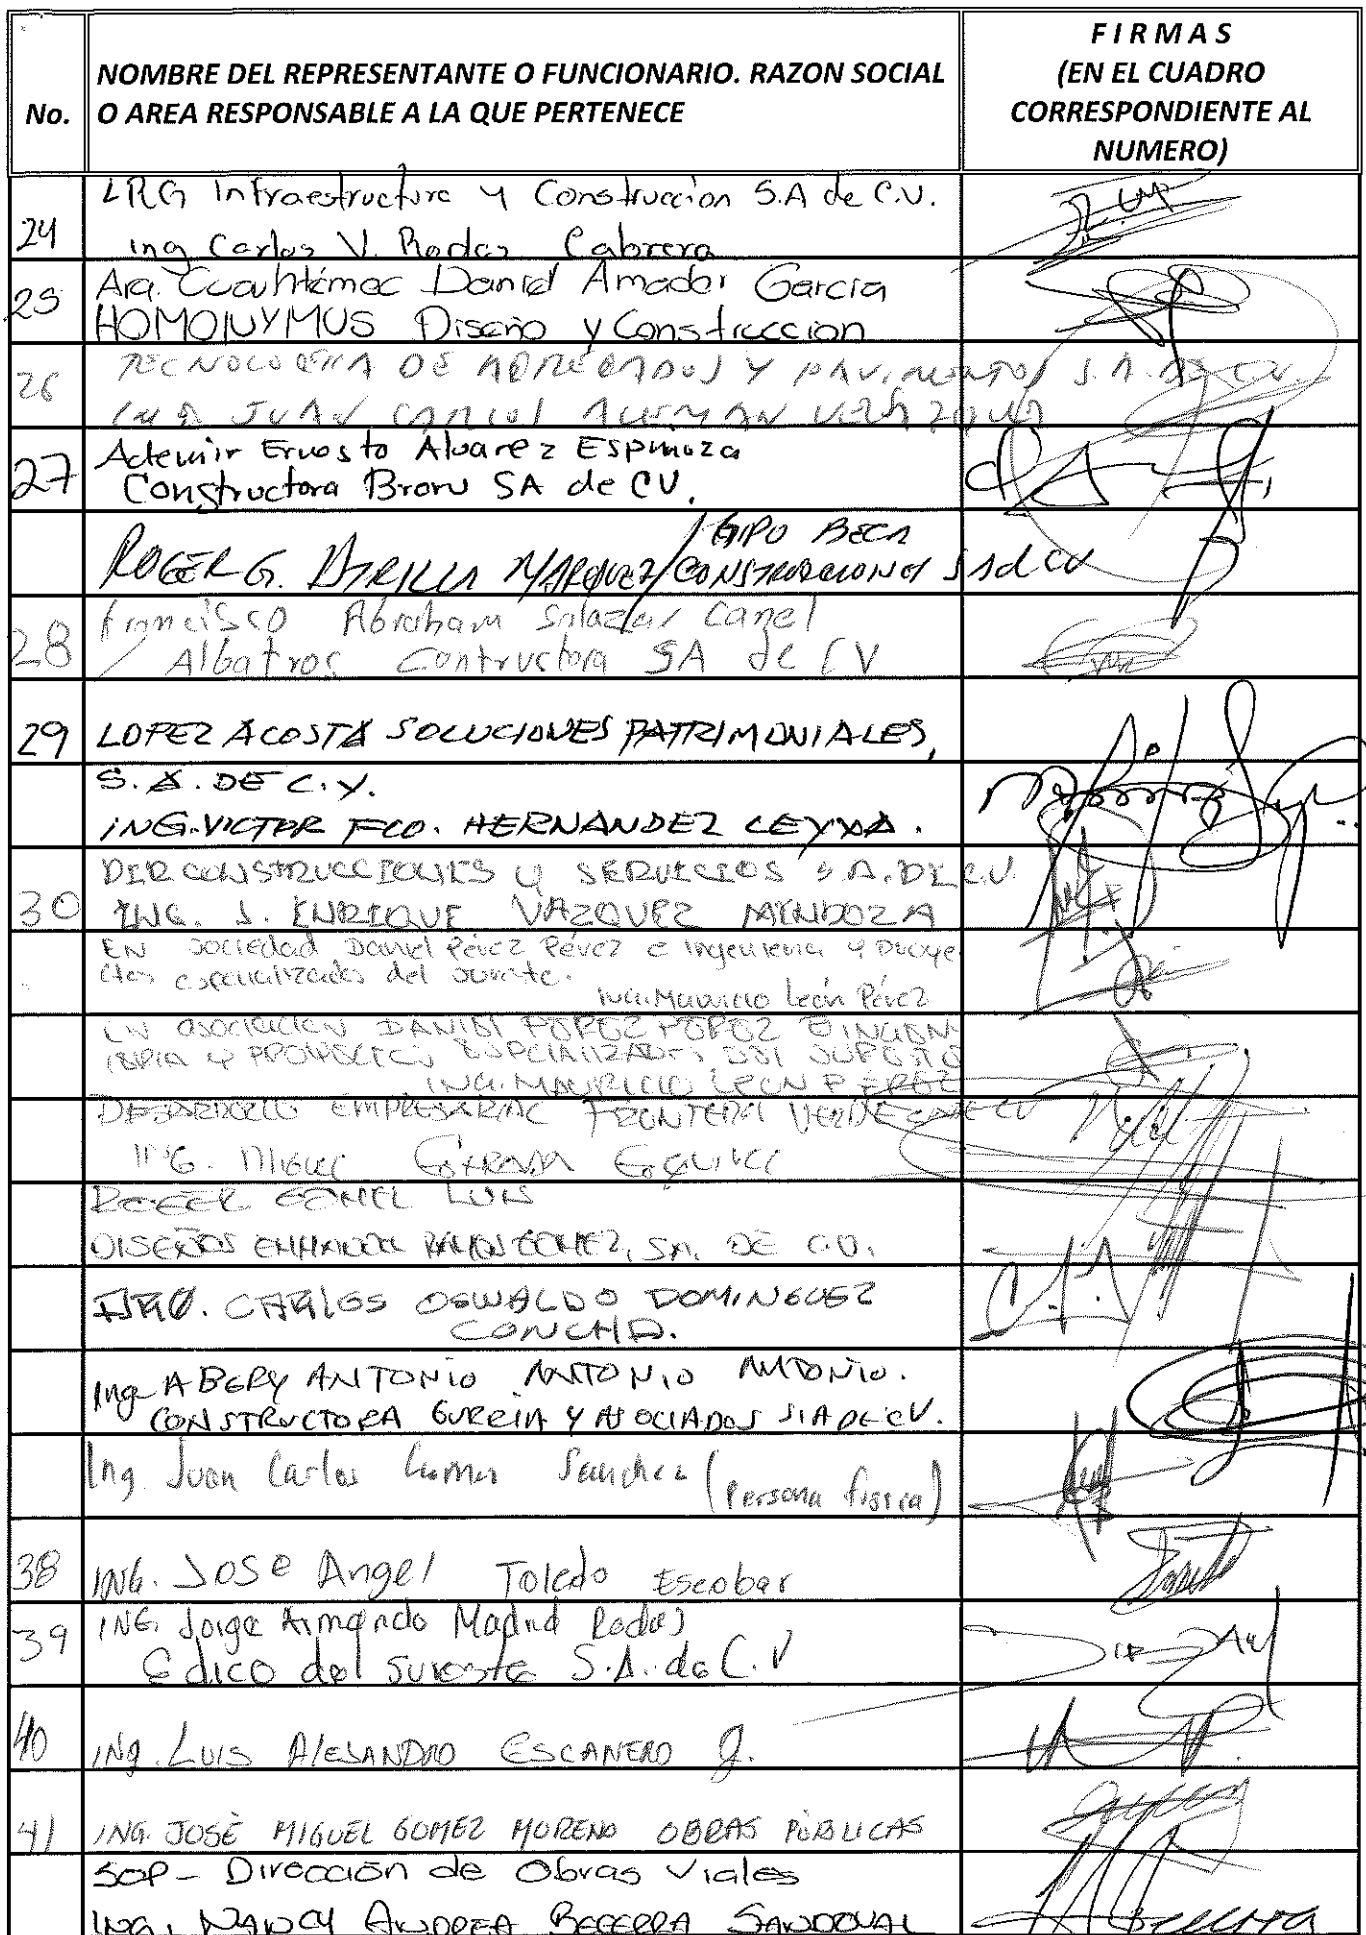 No.
NOMBRE DEL REPRESENTANTE O FUNCIONARIO. RAZON SOCIAL
O AREA RESPONSABLE A LA QUE PERTENECE
FIRMAS
(EN EL CUADRO
CORRESPONDIENTE AL
NUMERO)
24
LRG Infraestructura y Construccion S.A de C.V.
ing Carlos V. Rodas Cabrera
25
Arq. Cuauhtémoc Daniel Amador Garcia
HOMONYMUS Diseño y Construccion
26
TECNOLOGIA DE AGREGADOS Y PAVIMENTOS S.A. DE CV.
ING JUAN CARLOS ALEMAN VELAZQUEZ
27
Ademir Ernesto Alvarez Espinoza
Constructora SA de CV.
GIPO BECA
ROGER G. MARQUEZ / CONSTRUCCIONES SA d CV
28
Francisco Abraham Salazar Canel
Albatros Contructora SA de CV
29
LOPEZ ACOSTA SOLUCIONES PATRIMONIALES,
S.A. DE C.V.
ING. VICTOR FCO. HERNANDEZ LEYVA.
30
DIR CONSTRUCCIONES Y SERVICIOS S.A. DE C.V.
ING. J. ENRIQUE VAZQUEZ MENDOZA
EN sociedad Daniel Pérez Pérez e Ingenieria y Proye
ctos especializados del sureste.
ING. Mauricio León Pérez
EN asociacion DANIEL PEREZ PEREZ E INGEN
IERIA Y PROYECTOS ESPECIALIZADOS DEL SURESTE
ING. MAURICIO LEON PÉREZ
DESARROLLO EMPRESARIAL FRONTERA VERDE CV
ING. Miguel Estrada Esquivel
ROGER LUIS
DISEÑOS RAMOS GOMEZ, SA. DE C.V.
ARQ. CARLOS OSWALDO DOMINGUEZ
CONCHA.
Ing ABERY ANTONIO ANTONIO ANTONIO.
CONSTRUCTORA GURRIA Y ASOCIADOS S.A DE CV.
Ing. Juan Carlos Sanchez (Persona fisica)
38
ING. Jose Angel Toledo Escobar
39
ING. Jorge Armando Madrid Rodas
Edico del sureste S.A. de C.V
40
ING. LUIS ALEJANDRO ESCANERO J.
41
ING. JOSÉ MIGUEL GOMEZ MORENO OBRAS PÚBLICAS
SOP - Dirección de Obras Viales
ING. NANCY ANDREA BECERRA SANDOVAL